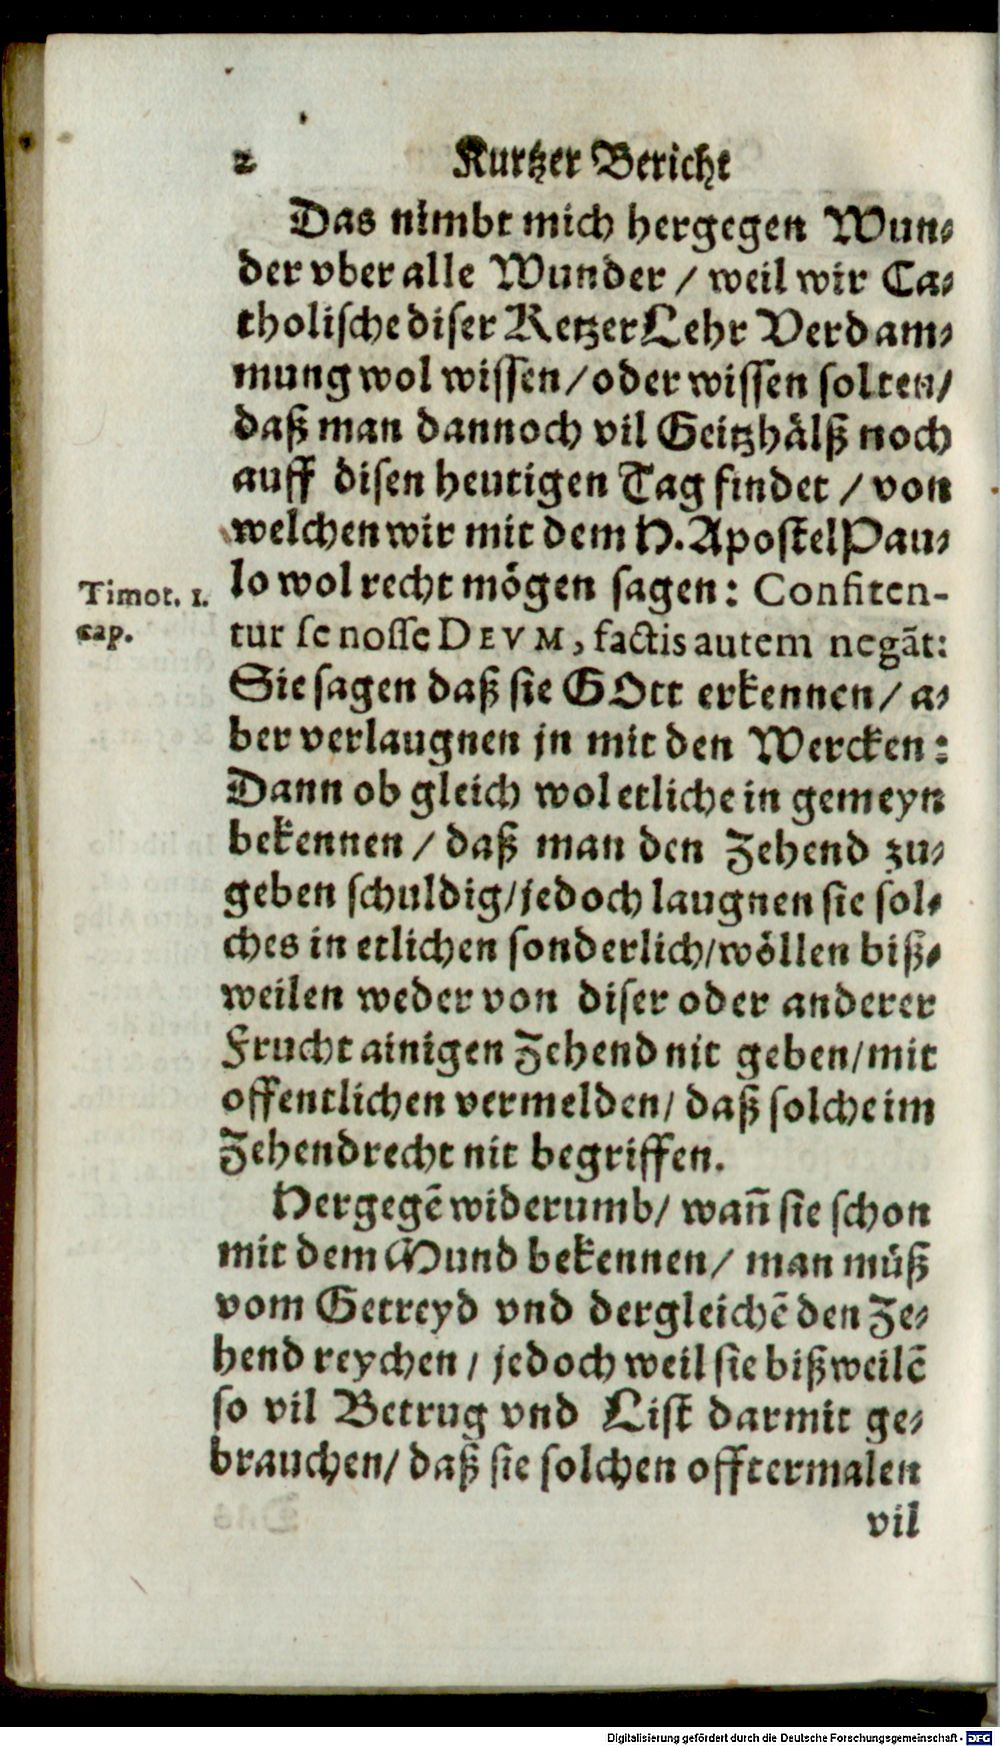 2 Kurtzer Bericht
Das nimbt mich hergegen Wun⸗
der vber alle Wunder / weil wir Ca⸗
tholische diser Ketzer Lehr Verdam⸗
mung wol wissen / oder wissen solten /
daß man dannoch vil Geitzhälß noch
auff disen heutigen Tag findet / von
welchen wir mit dem H. Apostel Pau⸗
Timot. 1.
cap.
lo wol recht mögen sagen: Confiten-
tur se nosse DEVM, factis autem negãt:
Sie sagen daß sie GOtt erkennen / a⸗
ber verlaugnen jn mit den Wercken:
Dann ob gleich wol etliche in gemeyn
bekennen / daß man den Zehend zu⸗
geben schuldig / jedoch laugnen sie sol⸗
ches in etlichen sonderlich / wöllen biß⸗
weilen weder von diser oder anderer
Frucht ainigen Zehend nit geben / mit
offentlichen vermelden / daß solche im
Zehendrecht nit begriffen.
Hergegẽ widerumb / wañ sie schon
mit dem Mund bekennen / man müß
vom Getreyd vnd dergleichẽ den Ze⸗
hend reychen / jedoch weil sie bißweilẽ
so vil Betrug vnd List darmit ge⸗
brauchen / daß sie solchen offtermalen
vil
Digitalisierung gefördert durch die Deutsche Forschungsgemeinschaft - DFG